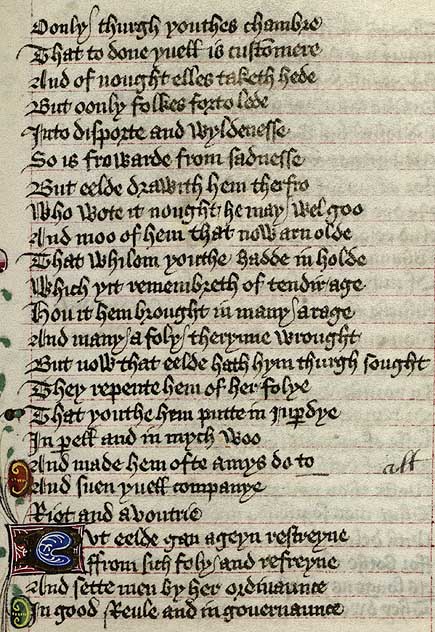 Oonly thurgh youthes chambre
That to done yuell is custömere
And of nought elles taketh hede
But oonly folkes forto lede
Into disporte and wyldenesse
So is frowarde from sadnesse
But eelde drawith hem therfro
Who wote it nought he may wel goo
And moo of hem that now arn olde
That whilom youthe hadde in holde
Which yit remembreth of tendir age
Hou it hem brought in many a rage
And many a foly therynne wrought
But now that eelde hath hym thurgh sought
They repente hem of her folye
That youthe hem putte in Iupdye
In pell and in mych woo
And made hem ofte amys do to
all
And suen yuell companye
Riot and avoutrie
But eelde gan ageyn restreyne
ffrom sich foly and refreyne
And sette men by her ordinaunce
In good Reule and in governaunce